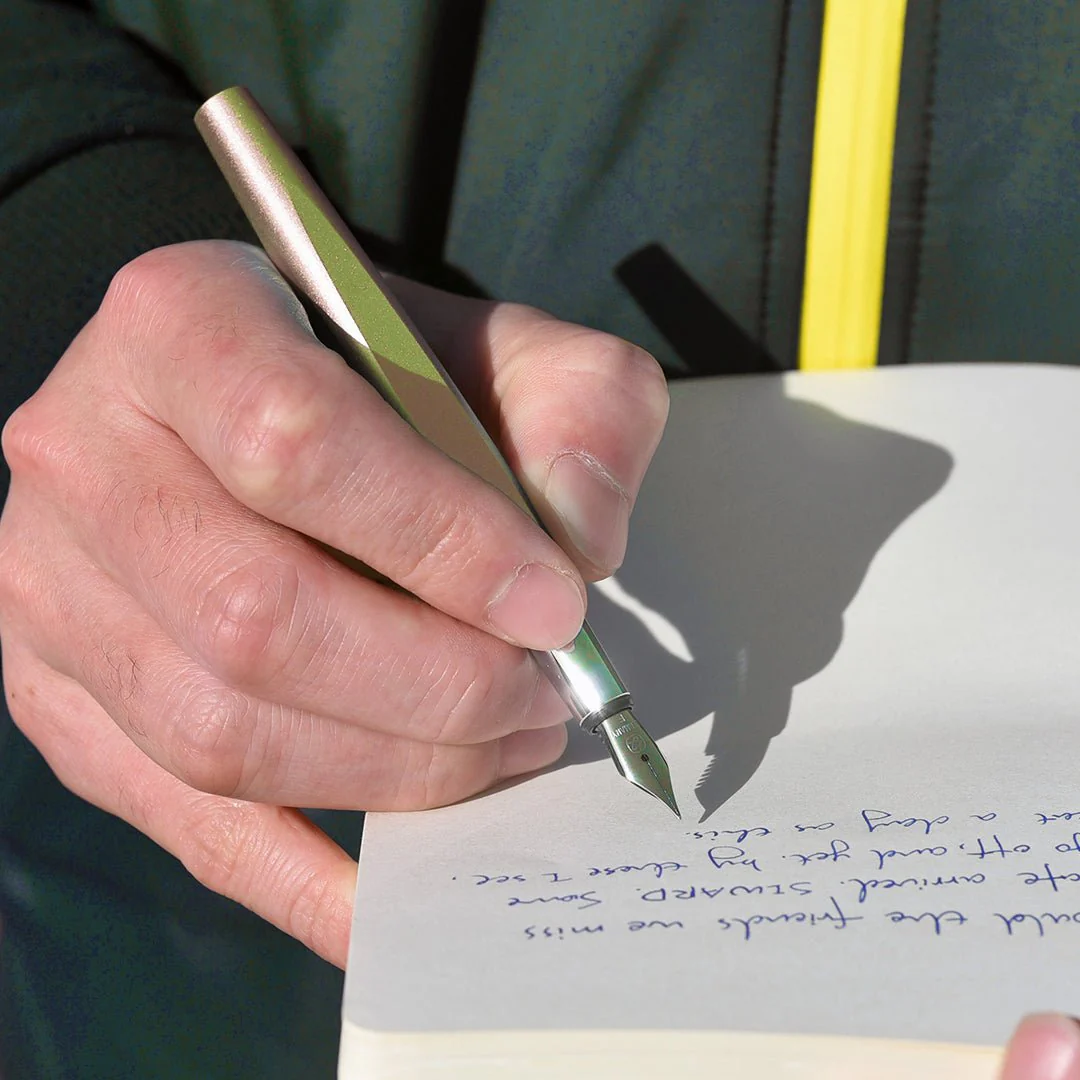 ould the friends we miss
afe arrived. SIWARD. Some
go off, and yet. by these I see.
eat a day as this.